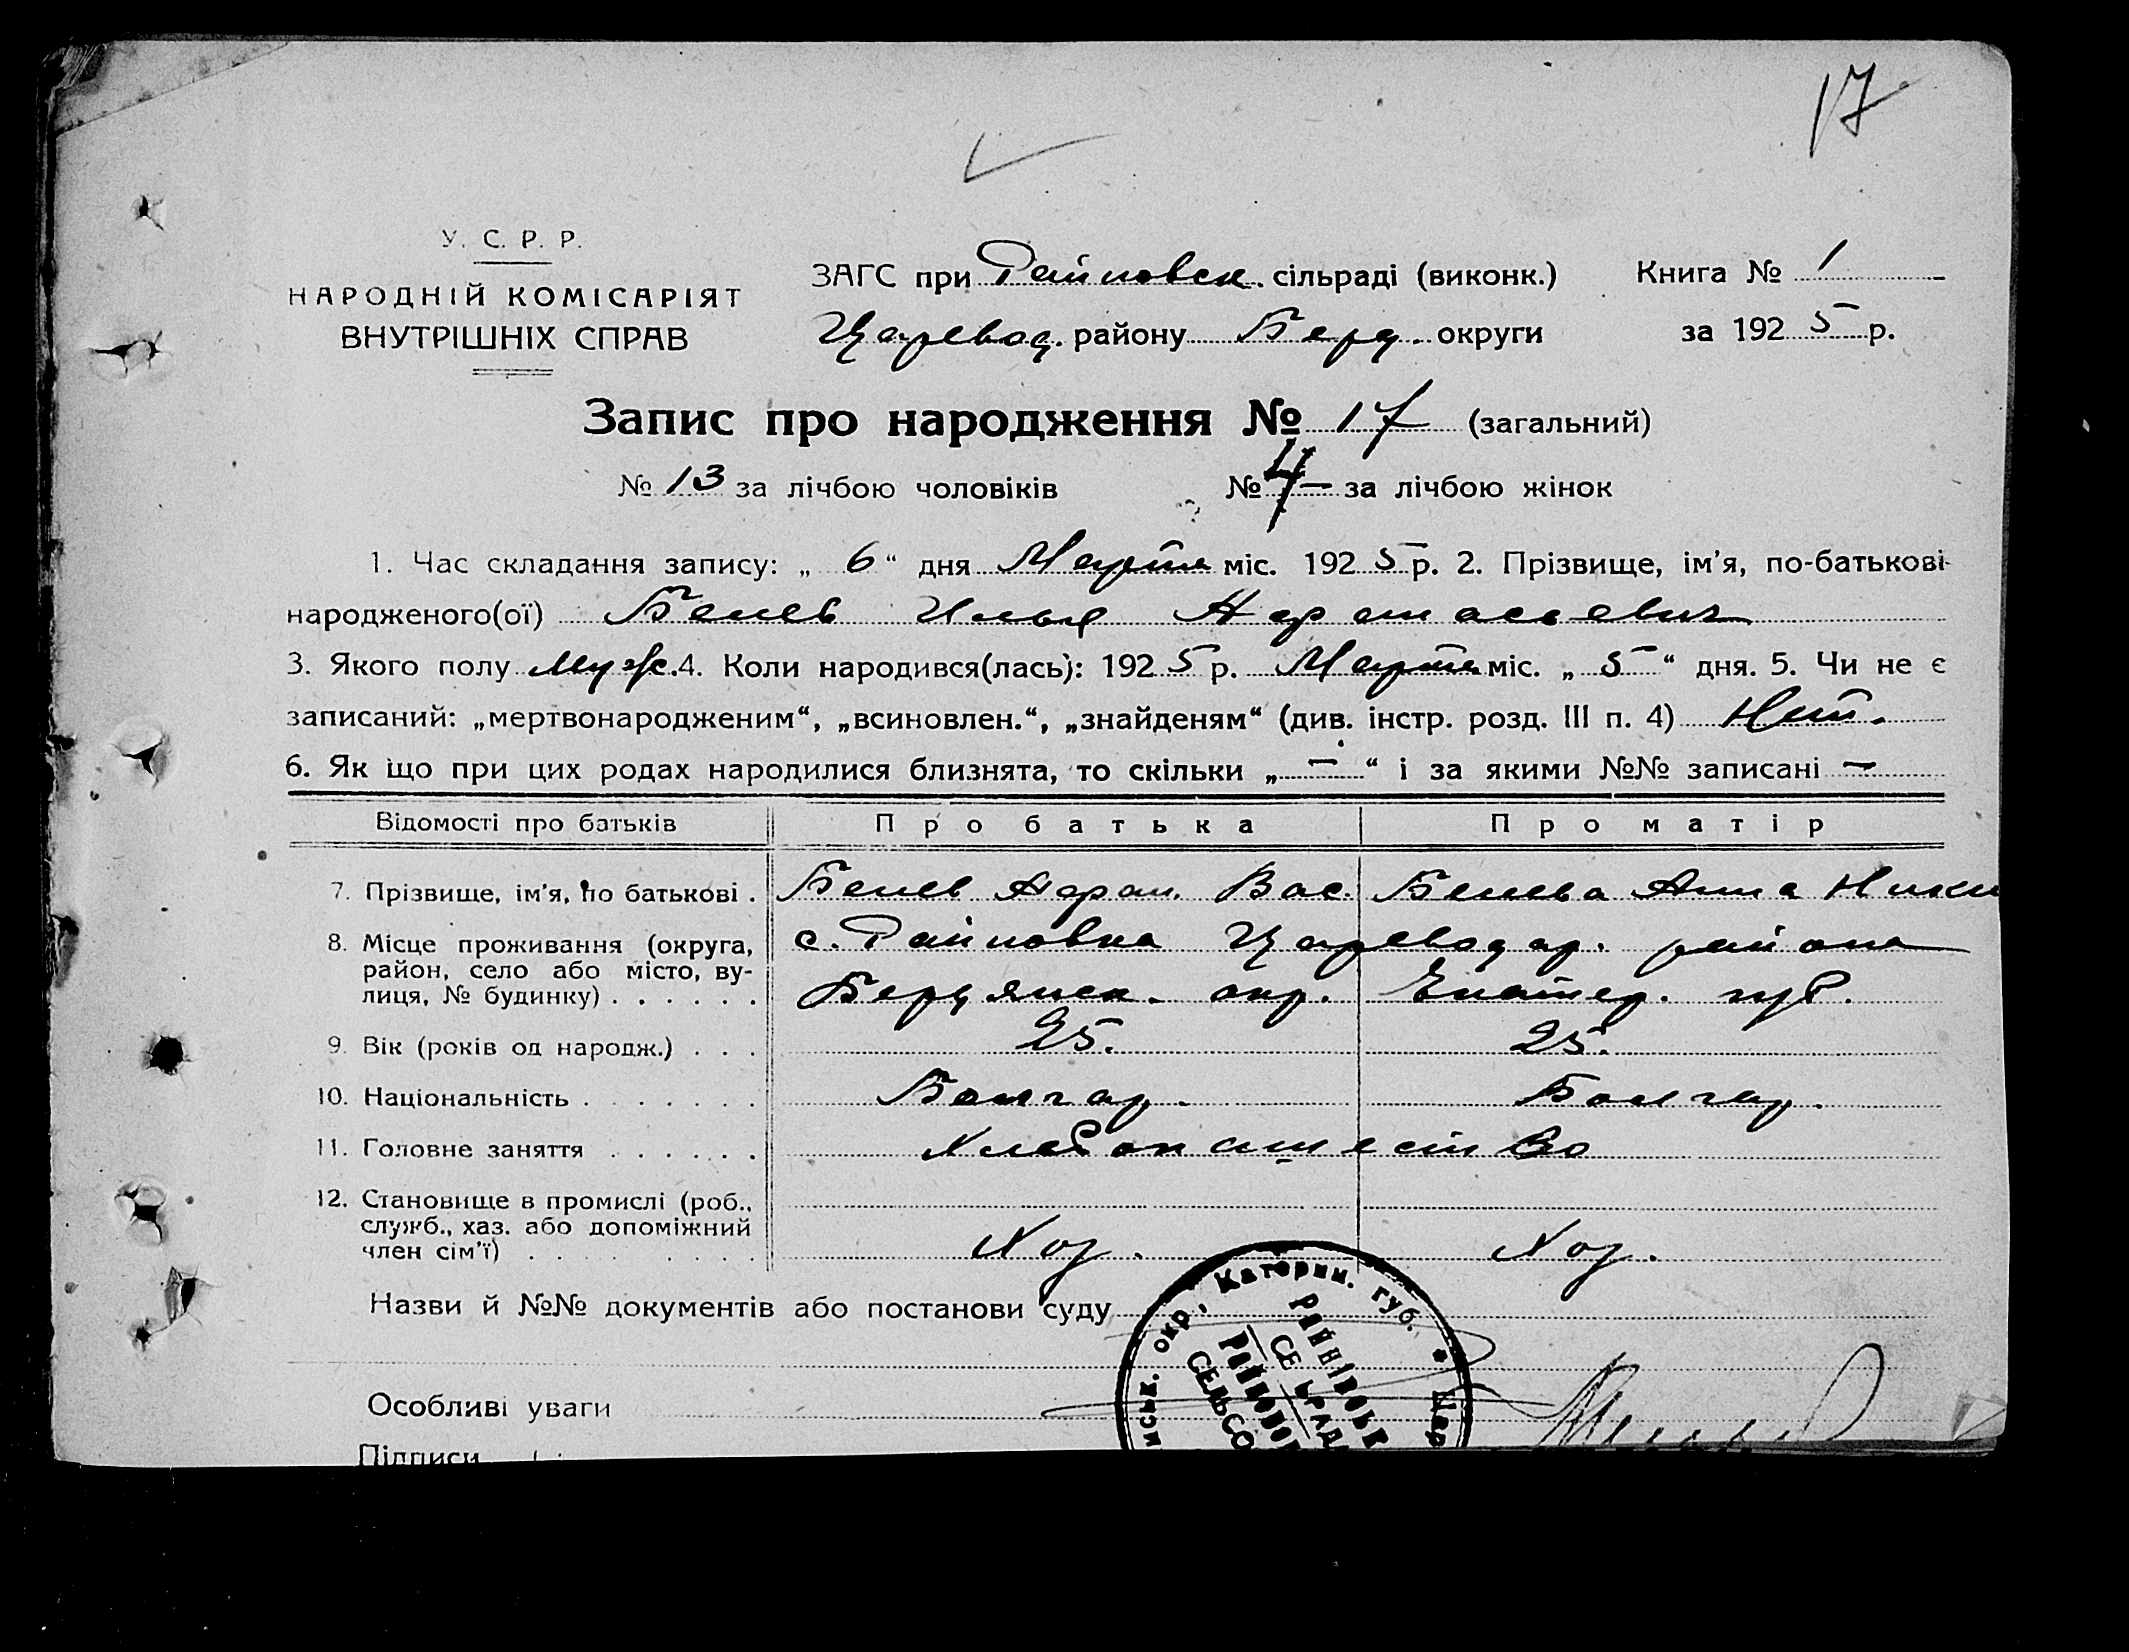 17
У. С. Р. Р.
НАРОДНІЙ КОМІСАРІЯТ
ВНУТРІШНІХ СПРАВ
ЗАГС при Райновск. сільраді (виконк.) Книга № 1
Царевод. району Берд. округи за 1925 р.
Запис про народження № 17 (загальний)
№ 13 за лічбою чоловіків № 4 — за лічбою жінок
1. Час складання запису: „ 6 “ дня Марта міс. 1925 р. 2. Прізвище, ім’я, по-батькові
народженого(ої) Белев Илья Афанасьевич
3. Якого полу Муж. 4. Коли народився(лась): 1925 р. Марта міс. „ 5 “ дня. 5. Чи не є
записаний: „мертвонародженим“, „всиновлен.“, „знайденям“ (див. інстр. розд. III п. 4) Нет.
6. Як що при цих родах народилися близнята, то скільки „ — “ і за якими №№ записані —
Відомості про батьків Про батька Про матір
7. Прізвище, ім’я, по батькові . Белев Афан. Вас. Белева Анна Ники
8. Місце проживання (округа, с. Райновка Цареводар. района
район, село або місто, ву-
лиця, № будинку) . . . . . . Бердянск. окр. Екатер. губ.
9. Вік (років од народж.) . . . 25. 25.
10. Національність . . . . . . . Болгар. Болгар.
11. Головне заняття . . . . . . Хлебопашество
12. Становище в промислі (роб.,
служб., хаз. або допоміжний
член сім’ї) . . . . . . Хоз. Хоз.
Назви й №№ документів або постанови суду
Особливі уваги
Підписи
иськ. окр., Катерин. губ. * Цар
РАЙНІВСЬК
СЕ ЬРАД
РАЙНОВС
СЕЛЬСО